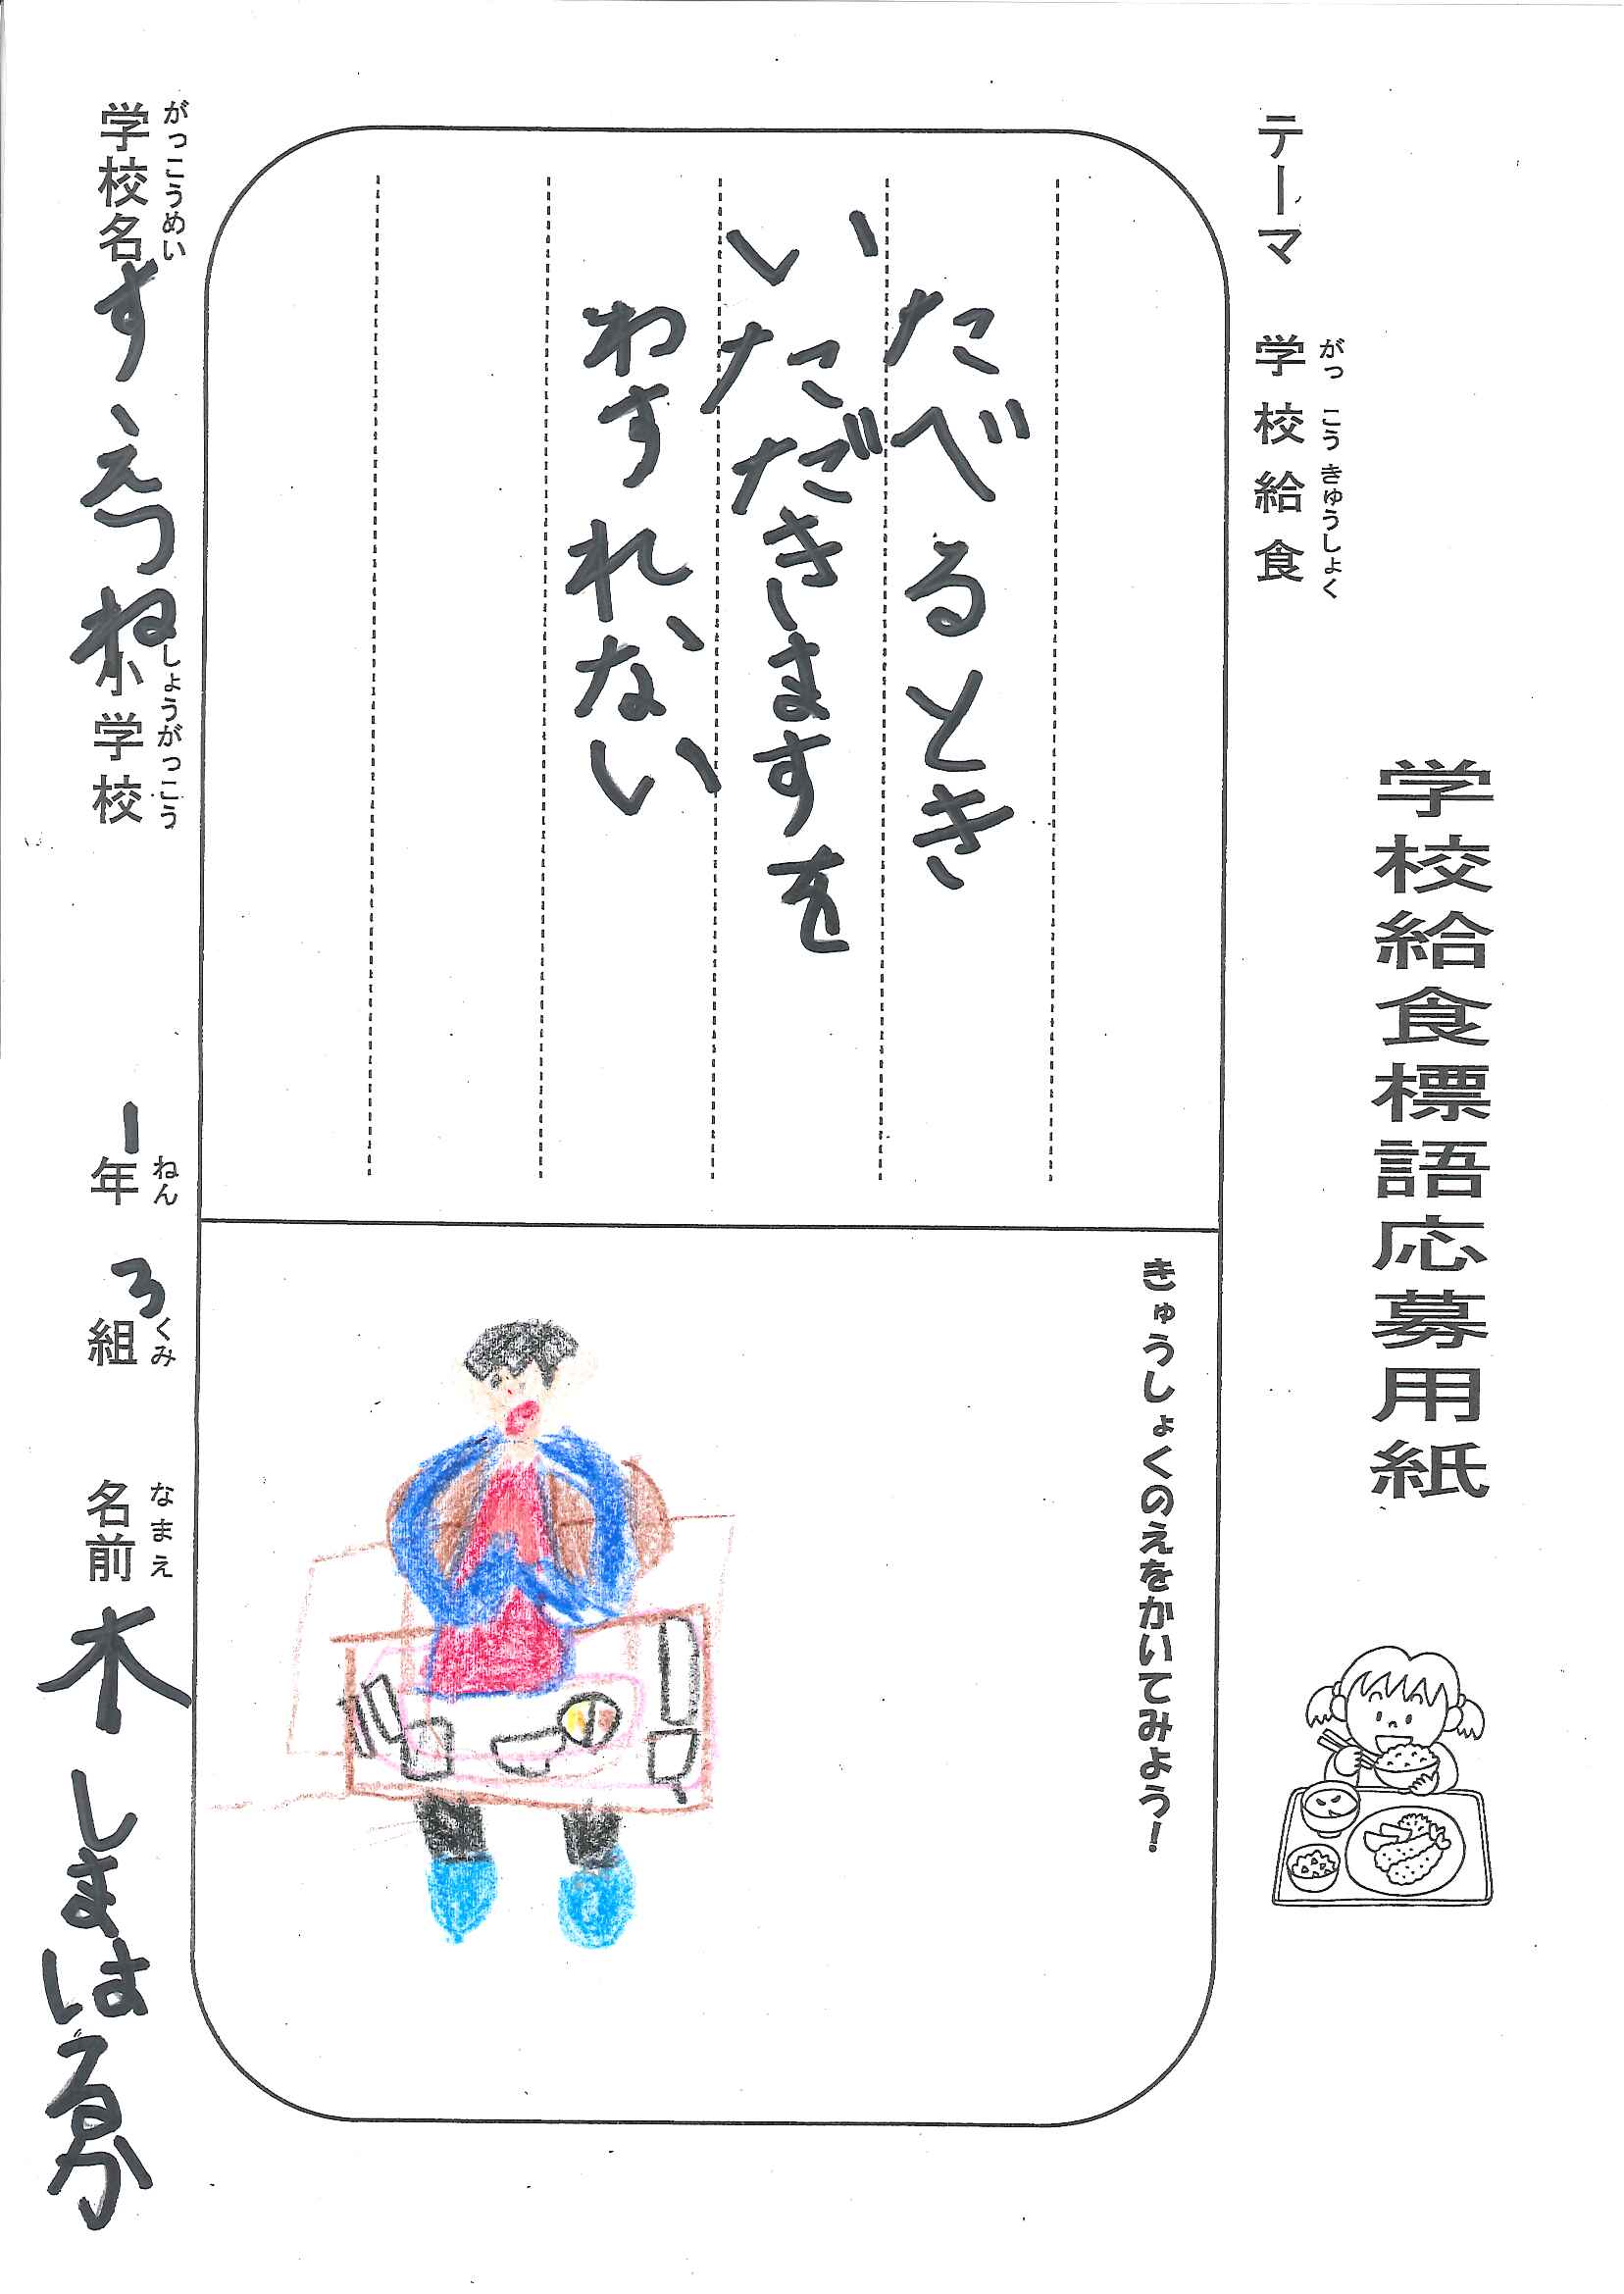 学校給食標語応募用紙
テーマ 学校給食
がっこうきゅうしょく
たべるとき
いただきますを
わすれない
きゅうしょくのえをかいてみよう!
がっこうめい しょうがっこう ねん くみ なまえ
学校名 すえつね小学校 1年 3組 名前 木しまはるか